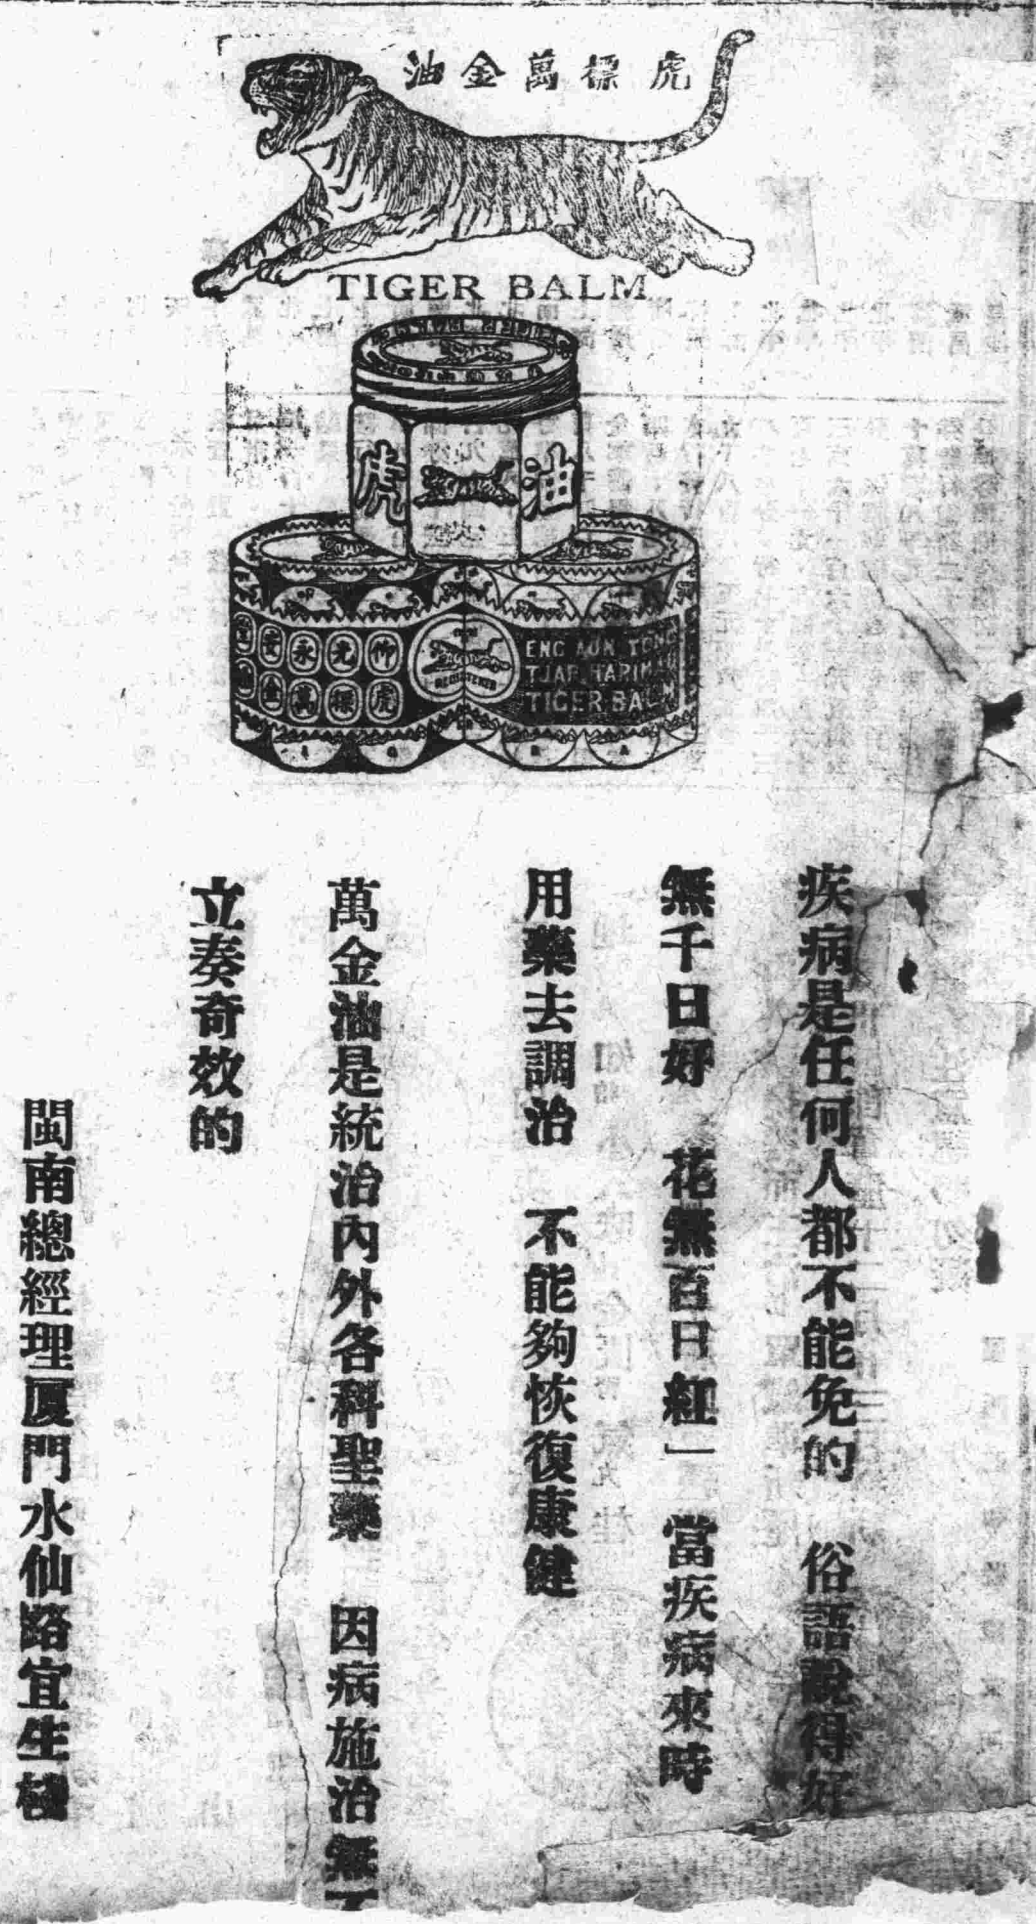 虎標萬金油
TIGER BALM
虎
油
仰光永安堂
虎標萬金
ENG AUN TONG
TJAP HARIMAU
TIGER BALM
REGISTERED
疾病是任何人都不能免的 俗語說得好
無千日好 花無百日紅」 當疾病來時
用藥去調治 不能夠恢復康健
萬金油是統治內外各科聖藥 因病施治無不
立奏奇效的
閩南總經理厦門水仙路宜生棧